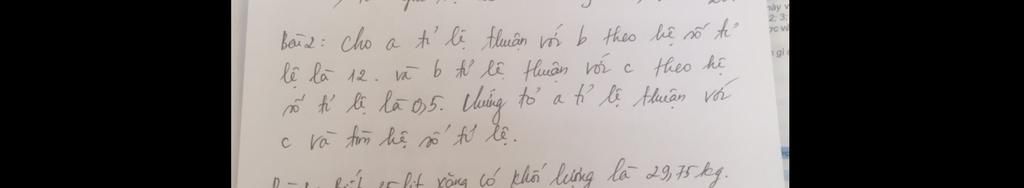 Bài 2: Cho a tỉ lệ thuận với b theo hệ số tỉ
lệ là 12. và b tỉ lệ thuận với c theo hệ
số tỉ lệ là 0,5. Chứng tỏ a tỉ lệ thuận với
c và tìm hệ số tỉ lệ.
lít xăng có khối lượng là 29,75 kg.